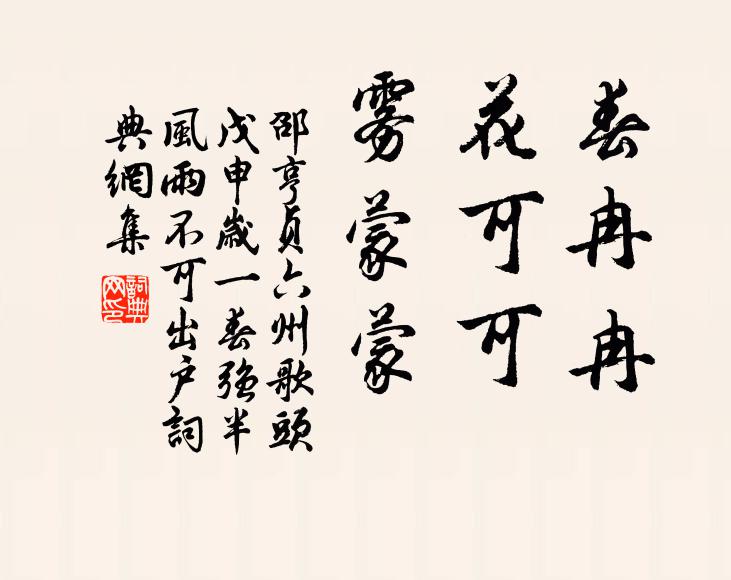 春冉冉
花可可
雾蒙蒙
邵亨貞六州歌頭
戊申歳一春强半
風雨不可出户詞
典網集
詞典
网印